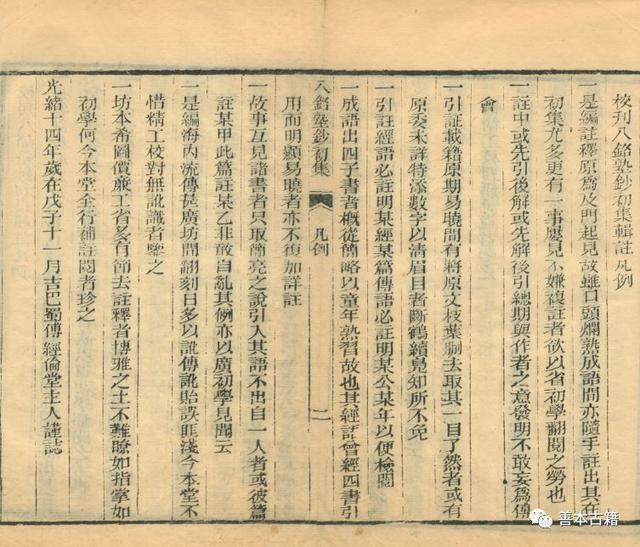 校刊八銘塾鈔初集輯註凡例
一是編註釋原為及門起見故雖口頭爛熟成語間亦隨手註出其在
初集尤多更有一事屢見不嫌複註者欲以省初學翻閱之勞也
一註中或先引後解或先解後引總期與作者之意發明不敢妄為傅
會
一引証載籍原期易曉間有將原文枝葉刪去取其一目了然者或有
原委未詳特添數字以清眉目者斷鶴續鳧知所不免
一引註經語必註明某經某篇傳語必註明某公某年以便檢閱
一成語出四子書者概從簡略以童年熟習故也其經語曾經四書引
八銘塾鈔初集 凡例 二
用而明顯易曉者亦不復加詳註
一故事互見諸書者只取簡亮之說引入其語不出自一人者或彼篇
註某甲此篇註某乙非敢自亂其例亦以廣初學見聞云
一是編海內流傳甚廣坊間翻刻日多以訛傳訛貽誤匪淺今本堂不
惜精工校對無訛識者鑒之
一坊本希圖價廉工省多有節去註釋者博雅之士不難瞭如指掌如
初學何今本堂全行補註閱者珍之
光緒十四年歲在戊子十一月吉巴蜀傅經倫堂主人謹誌
善本古籍